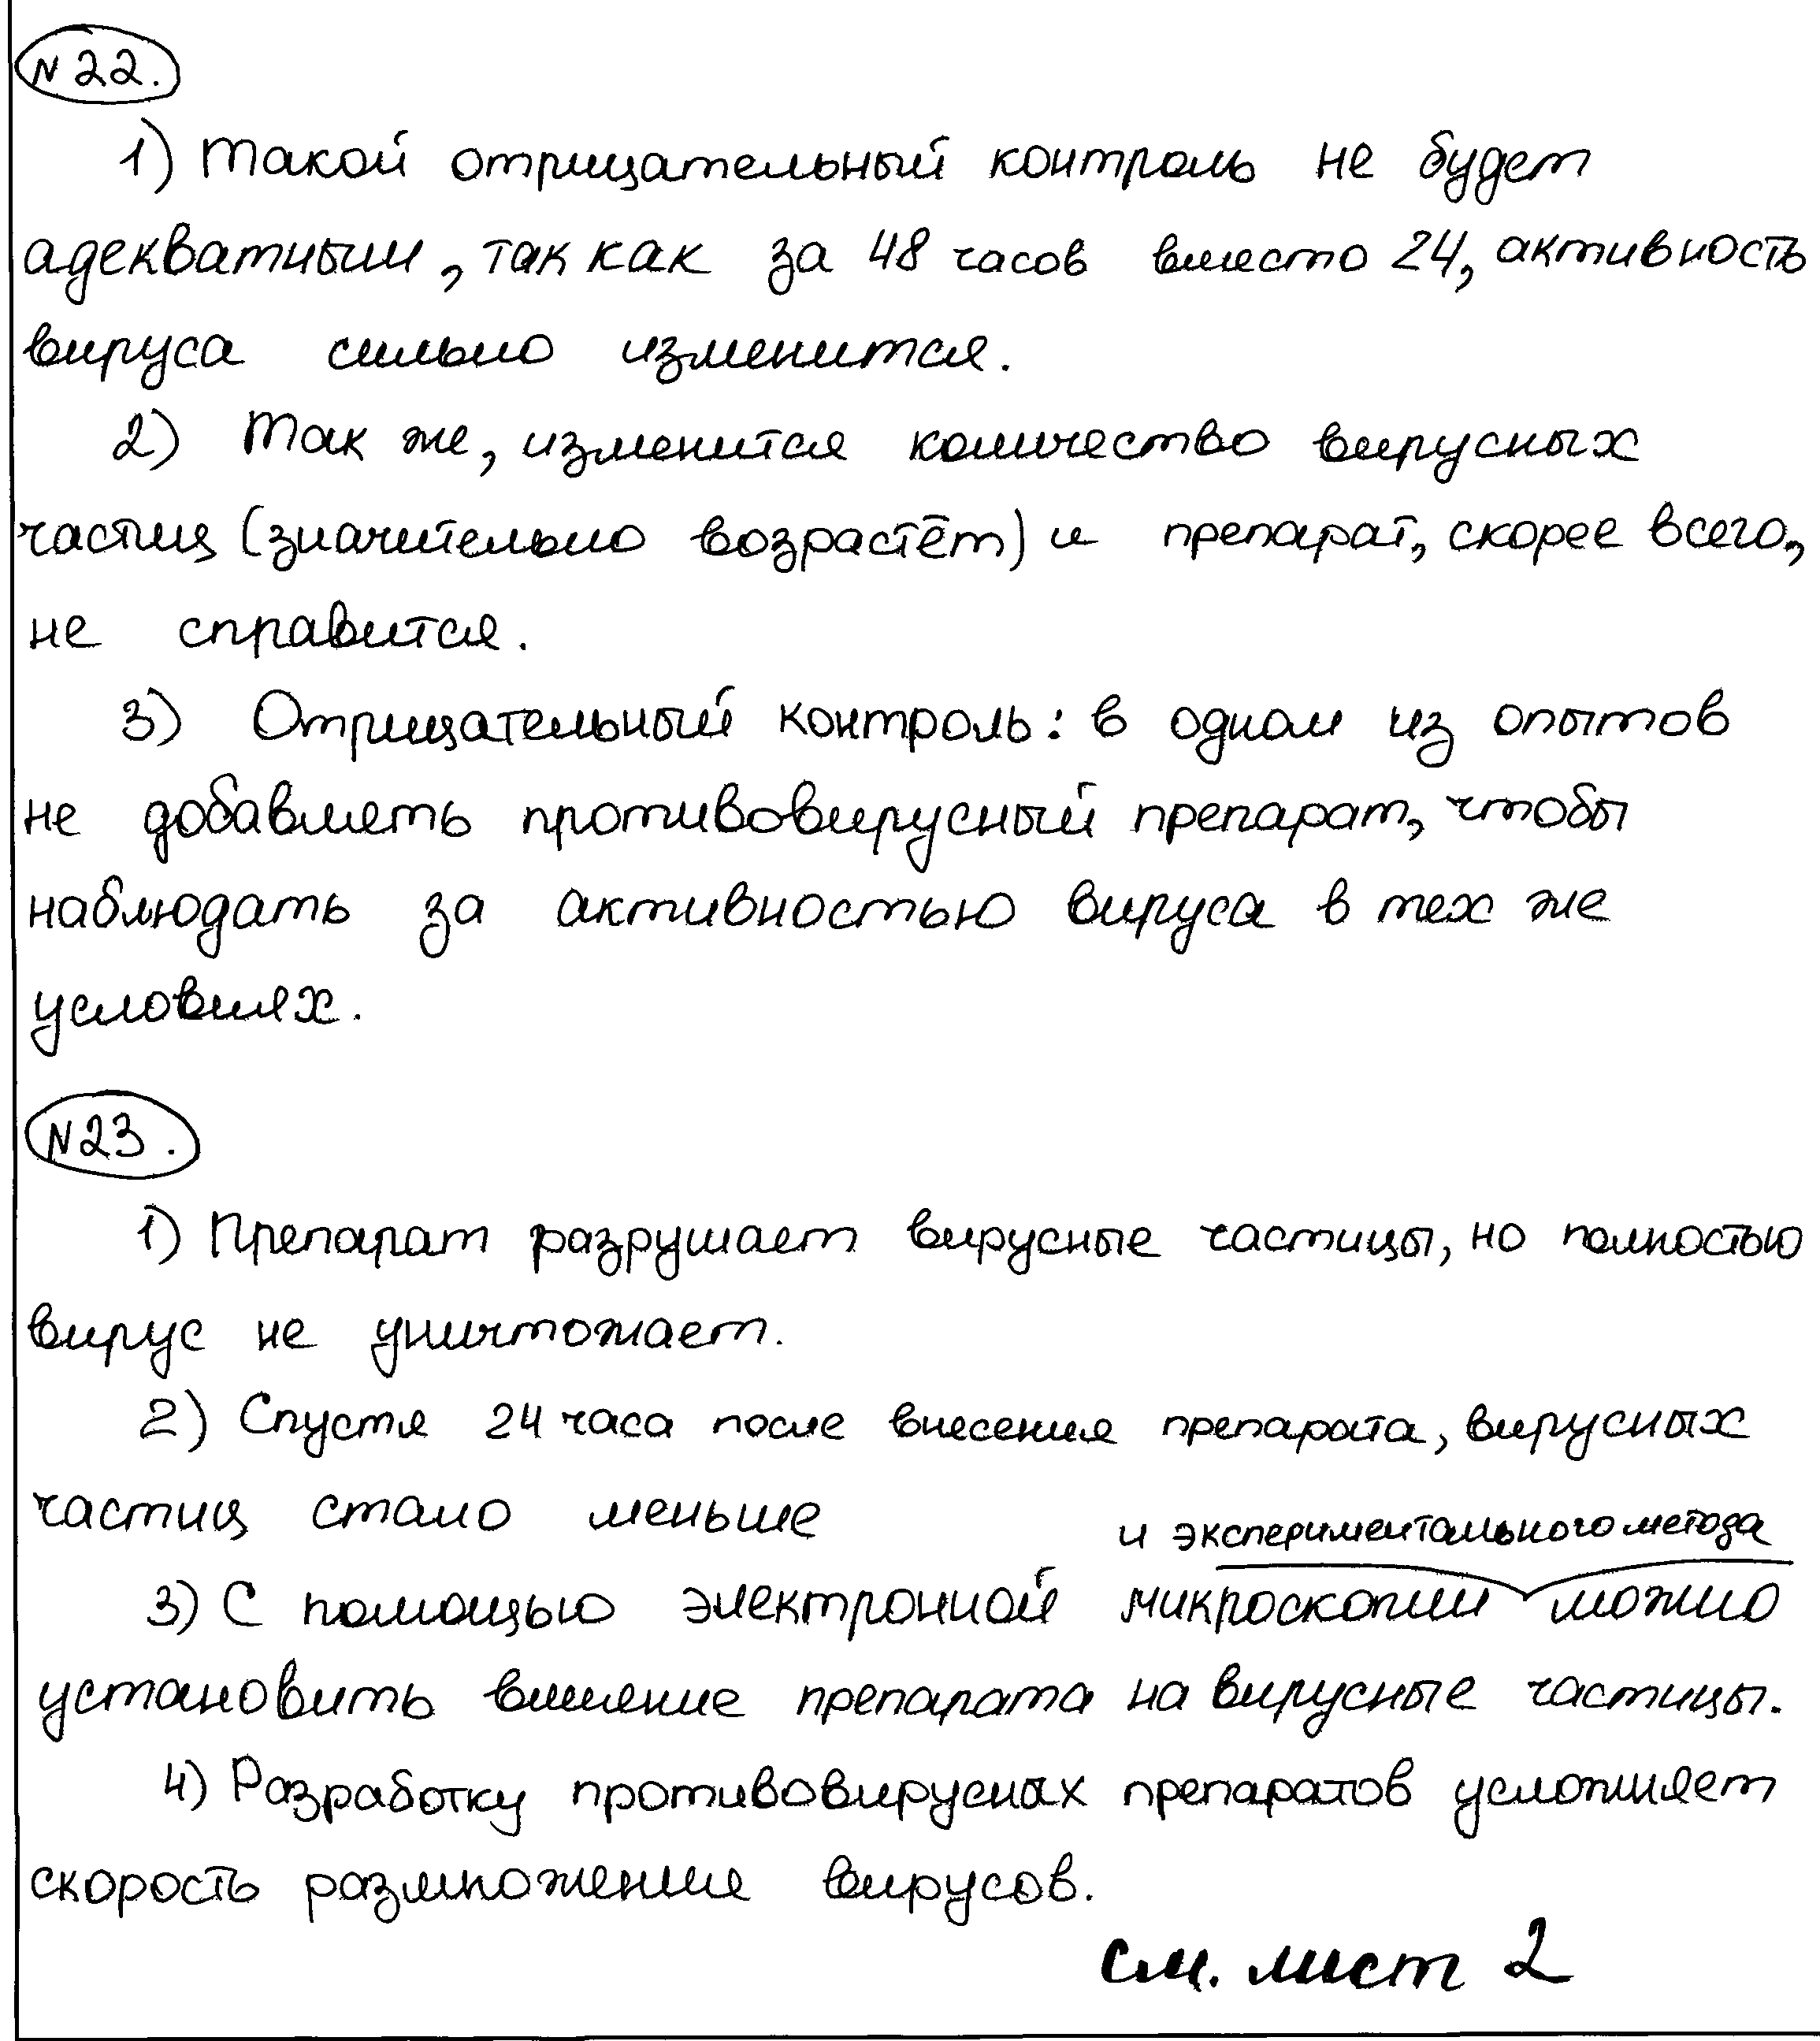 N 22.
1) Такой отрицательный контроль не будет
адекватным, так как за 48 часов вместо 24, активность
вируса сильно изменится.
2) Так же, изменится количество вирусных
частиц (значительно возрастёт) и препарат, скорее всего,
не справится.
3) Отрицательный контроль: в одном из опытов
не добавлять противовирусный препарат, чтобы
наблюдать за активностью вируса в тех же
условиях.
N23.
1) Препарат разрушает вирусные частицы, но полностью
вирус не уничтожает.
2) Спустя 24 часа после внесения препарата, вирусных
частиц стало меньше
и экспериментального метода
3) С помощью электронной микроскопии можно
установить влияние препарата на вирусные частицы.
4) Разработку противовирусных препаратов усложняет
скорость размножения вирусов.
см. лист 2